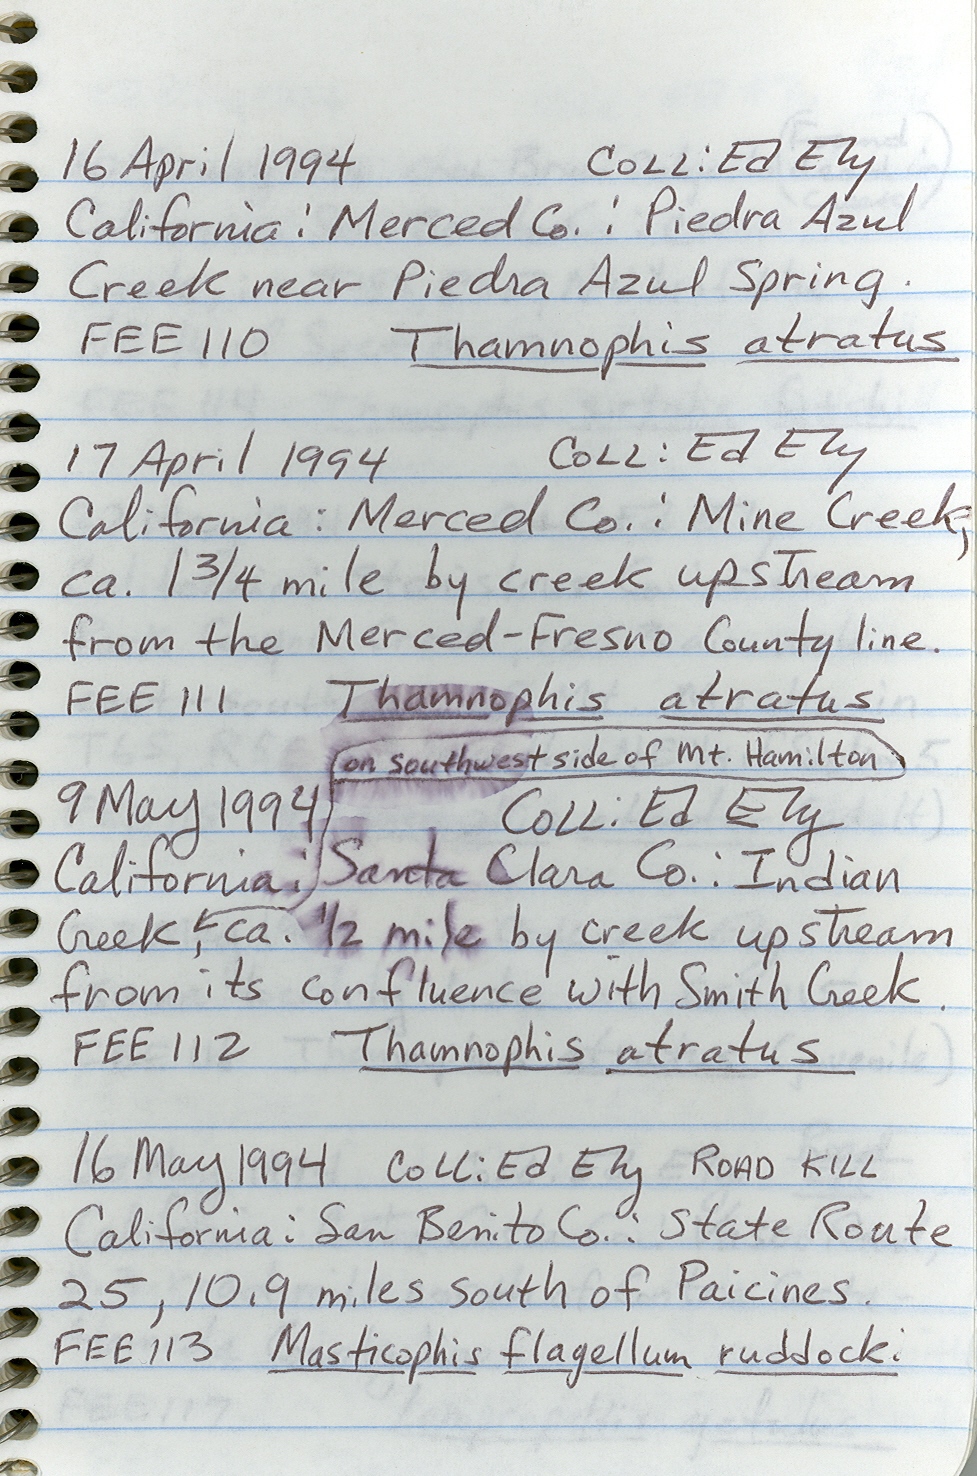 16 April 1994 COLL: Ed Ely
California: Merced Co.: Piedra Azul
Creek near Piedra Azul Spring.
FEE 110 Thamnophis atratus
17 April 1994 COLL: Ed Ely
California: Merced Co.: Mine Creek,
ca. 1 3/4 mile by creek upstream
from the Merced-Fresno County line.
FEE 111 Thamnophis atratus
on southwest side of Mt. Hamilton
9 May 1994 COLL: Ed Ely
California: Santa Clara Co.: Indian
Creek, ca. 1/2 mile by creek upstream
from its confluence with Smith Creek.
FEE 112 Thamnophis atratus
16 May 1994 COLL: Ed Ely ROAD KILL
California: San Benito Co.: State Route
25, 10.9 miles south of Paicines.
FEE 113 Masticophis flagellum ruddocki